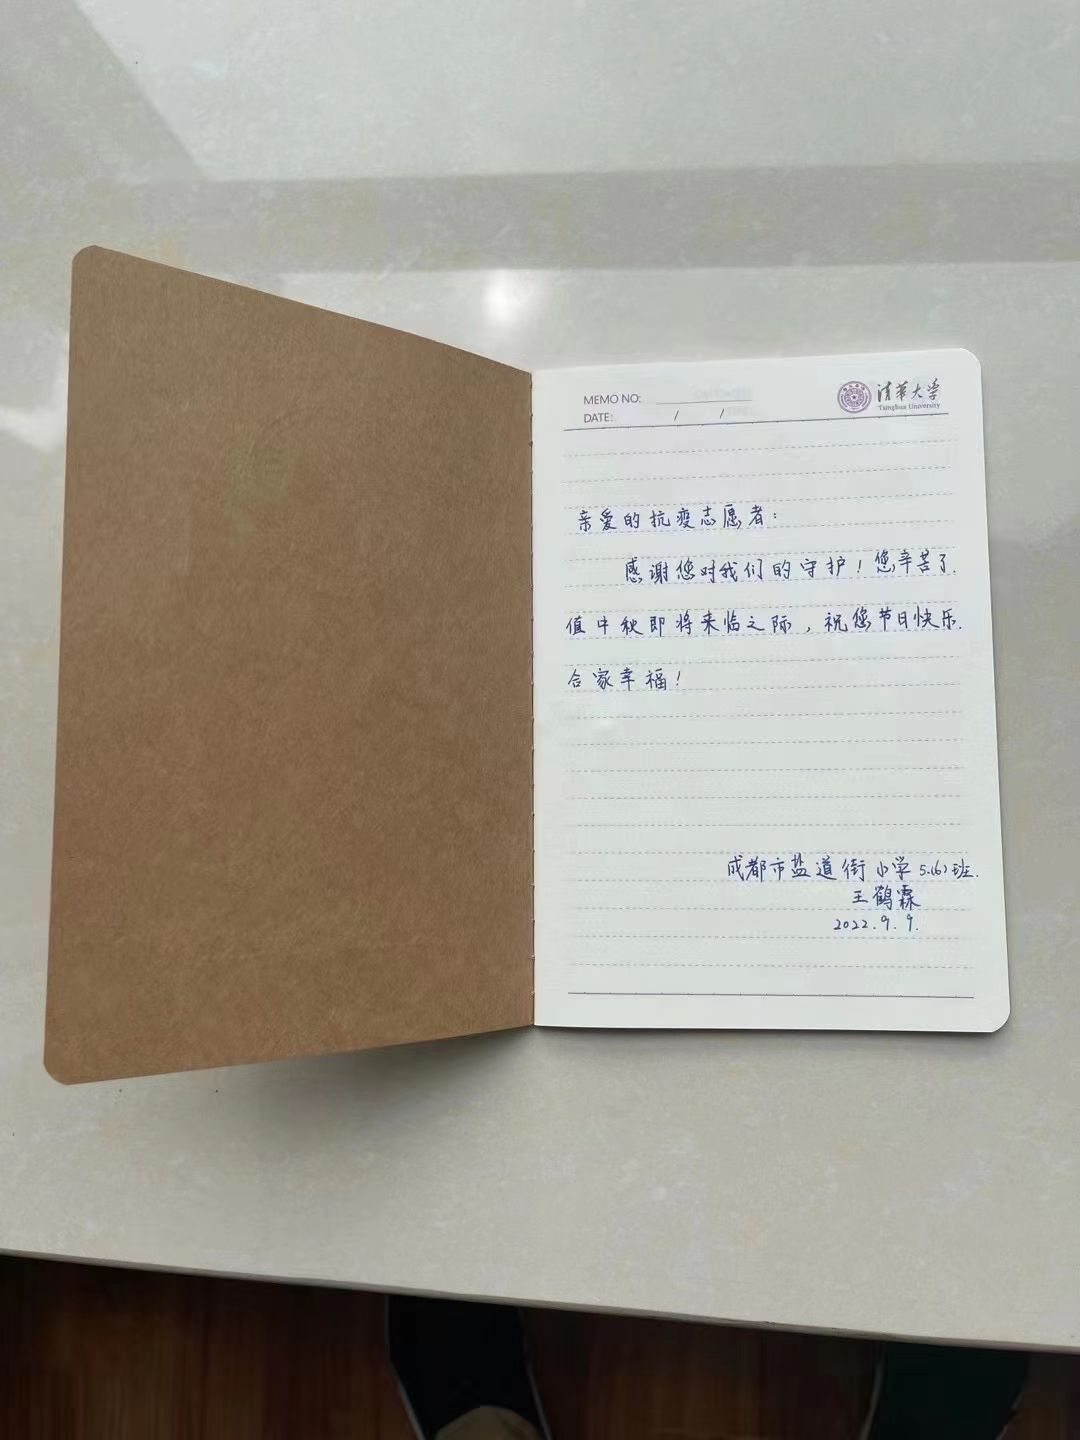 MEMO NO:
DATE: / /
清华大学
Tsinghua University
亲爱的抗疫志愿者:
感谢您对我们的守护!您辛苦了.
值中秋即将来临之际,祝您节日快乐.
合家幸福!
成都市盐道街小学5.(6)班.
王鹤霖
2022.9.9.